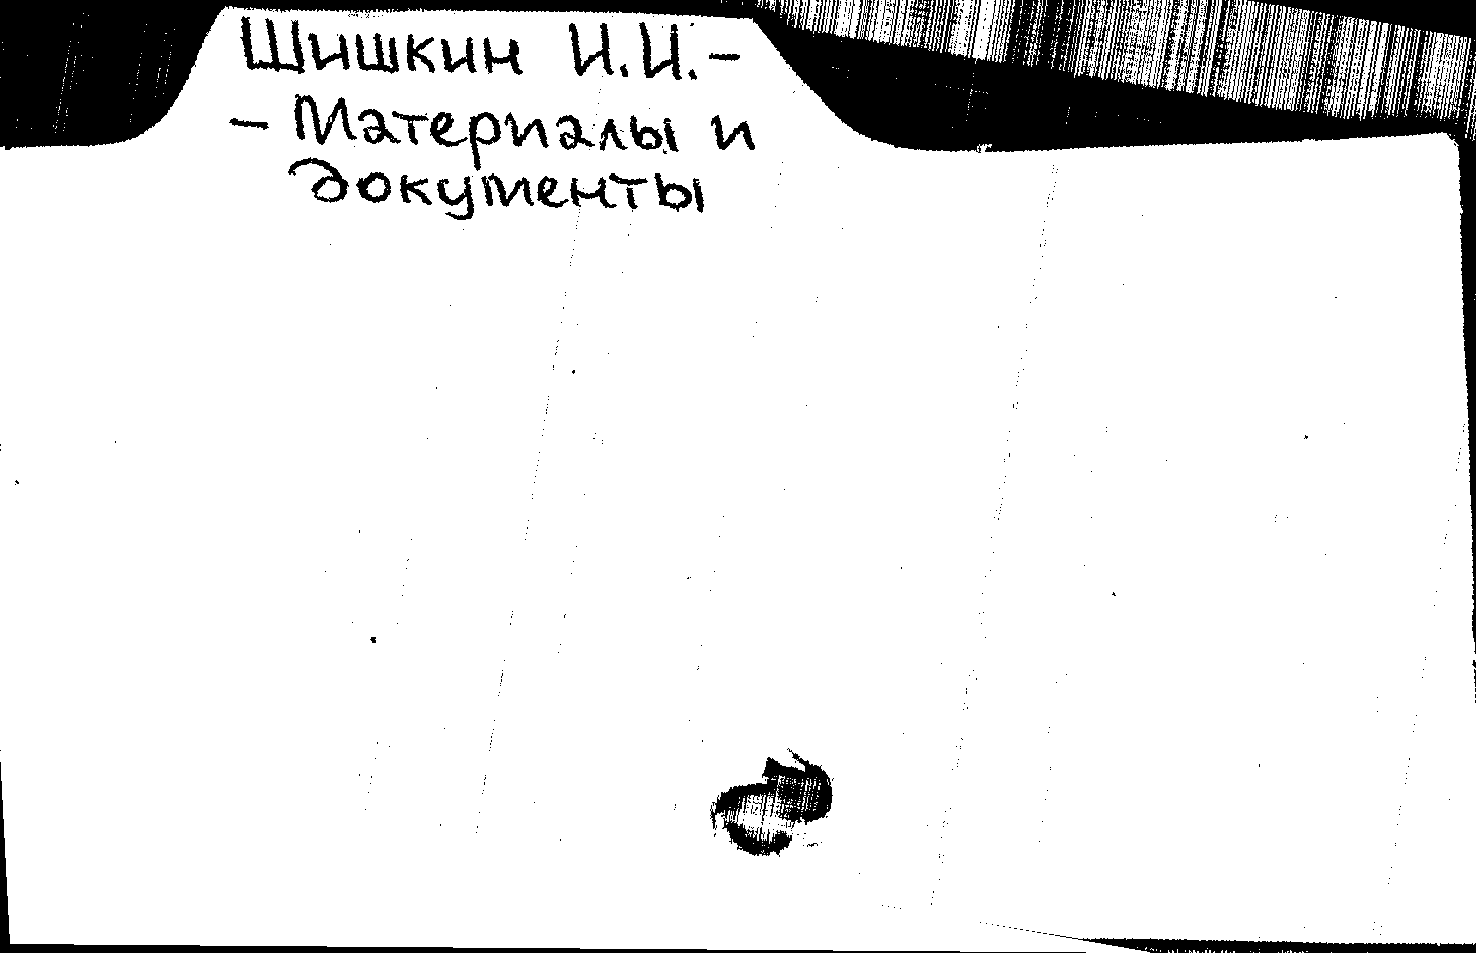 Шишкин И.И. –
– Материалы и
документы